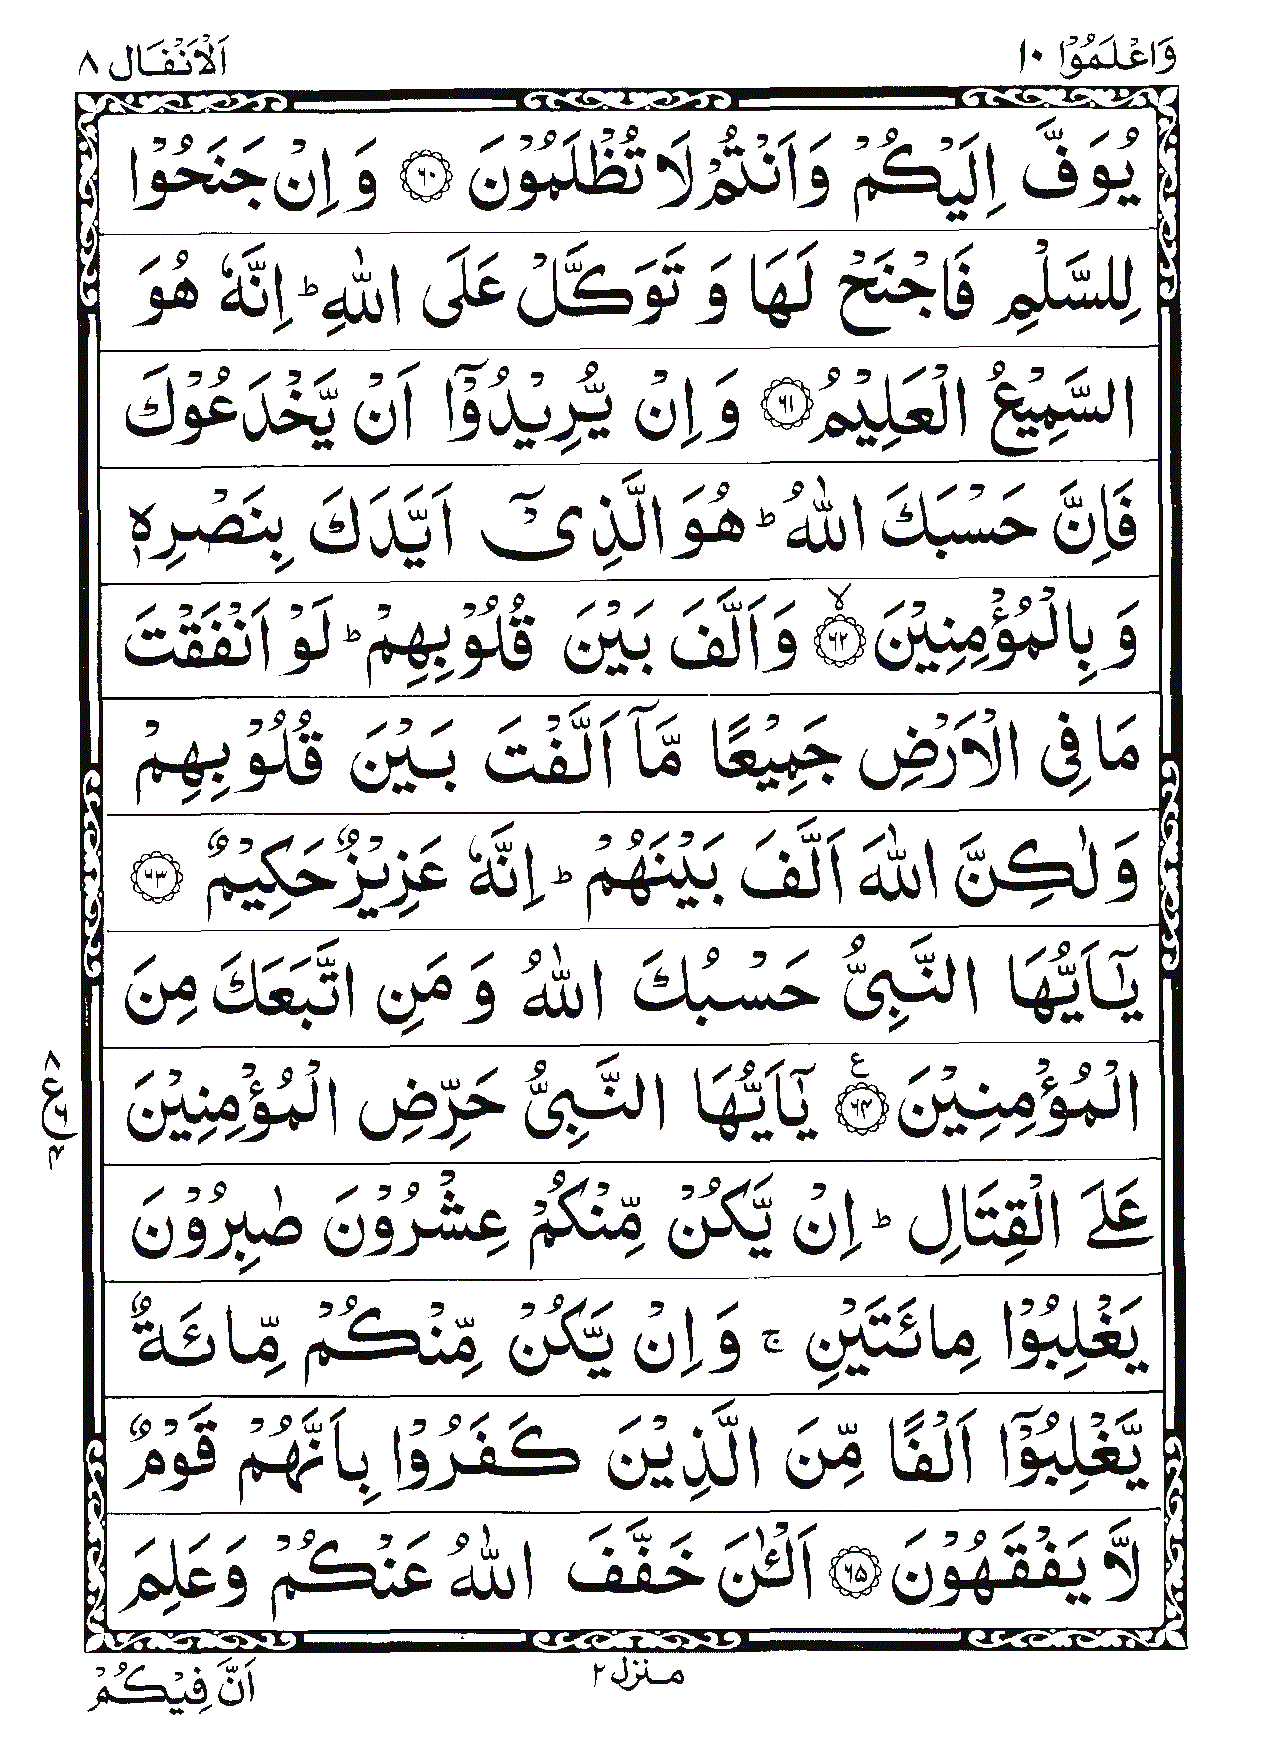 وَاعْلَمُوْۤا ١٠
اَلْاَنْفَال ٨
يُوَفَّ اِلَيْكُمْ وَاَنْتُمْ لَا تُظْلَمُوْنَ ۝٦٠ وَ اِنْ جَنَحُوْا
لِلسَّلْمِ فَاجْنَحْ لَهَا وَ تَوَكَّلْ عَلَى اللّٰهِ ؕ اِنَّهٗ هُوَ
السَّمِيْعُ الْعَلِيْمُ ۝٦١ وَ اِنْ يُّرِيْدُوْۤا اَنْ يَّخْدَعُوْكَ
فَاِنَّ حَسْبَكَ اللّٰهُ ؕ هُوَ الَّذِىْۤ اَيَّدَكَ بِنَصْرِهٖ
وَ بِالْمُؤْمِنِيْنَ ۝٦٢ ۙ وَاَلَّفَ بَيْنَ قُلُوْبِهِمْ ؕ لَوْ اَنْفَقْتَ
مَا فِى الْاَرْضِ جَمِيْعًا مَّاۤ اَلَّفْتَ بَيْنَ قُلُوْبِهِمْ
وَلٰكِنَّ اللّٰهَ اَلَّفَ بَيْنَهُمْ ؕ اِنَّهٗ عَزِيْزٌ حَكِيْمٌ ۝٦٣
يٰۤاَيُّهَا النَّبِىُّ حَسْبُكَ اللّٰهُ وَ مَنِ اتَّبَعَكَ مِنَ
الْمُؤْمِنِيْنَ ۝٦٤ ع يٰۤاَيُّهَا النَّبِىُّ حَرِّضِ الْمُؤْمِنِيْنَ
عَلَى الْقِتَالِ ؕ اِنْ يَّكُنْ مِّنْكُمْ عِشْرُوْنَ صٰبِرُوْنَ
يَغْلِبُوْا مِائَتَيْنِ ۚ وَ اِنْ يَّكُنْ مِّنْكُمْ مِّائَةٌ
يَّغْلِبُوْۤا اَلْفًا مِّنَ الَّذِيْنَ كَفَرُوْا بِاَنَّهُمْ قَوْمٌ
لَّا يَفْقَهُوْنَ ۝٦٥ اَلْئٰنَ خَفَّفَ اللّٰهُ عَنْكُمْ وَعَلِمَ
٨
ع ٦
٤
منزل ٢
اَنَّ فِيْكُمْ